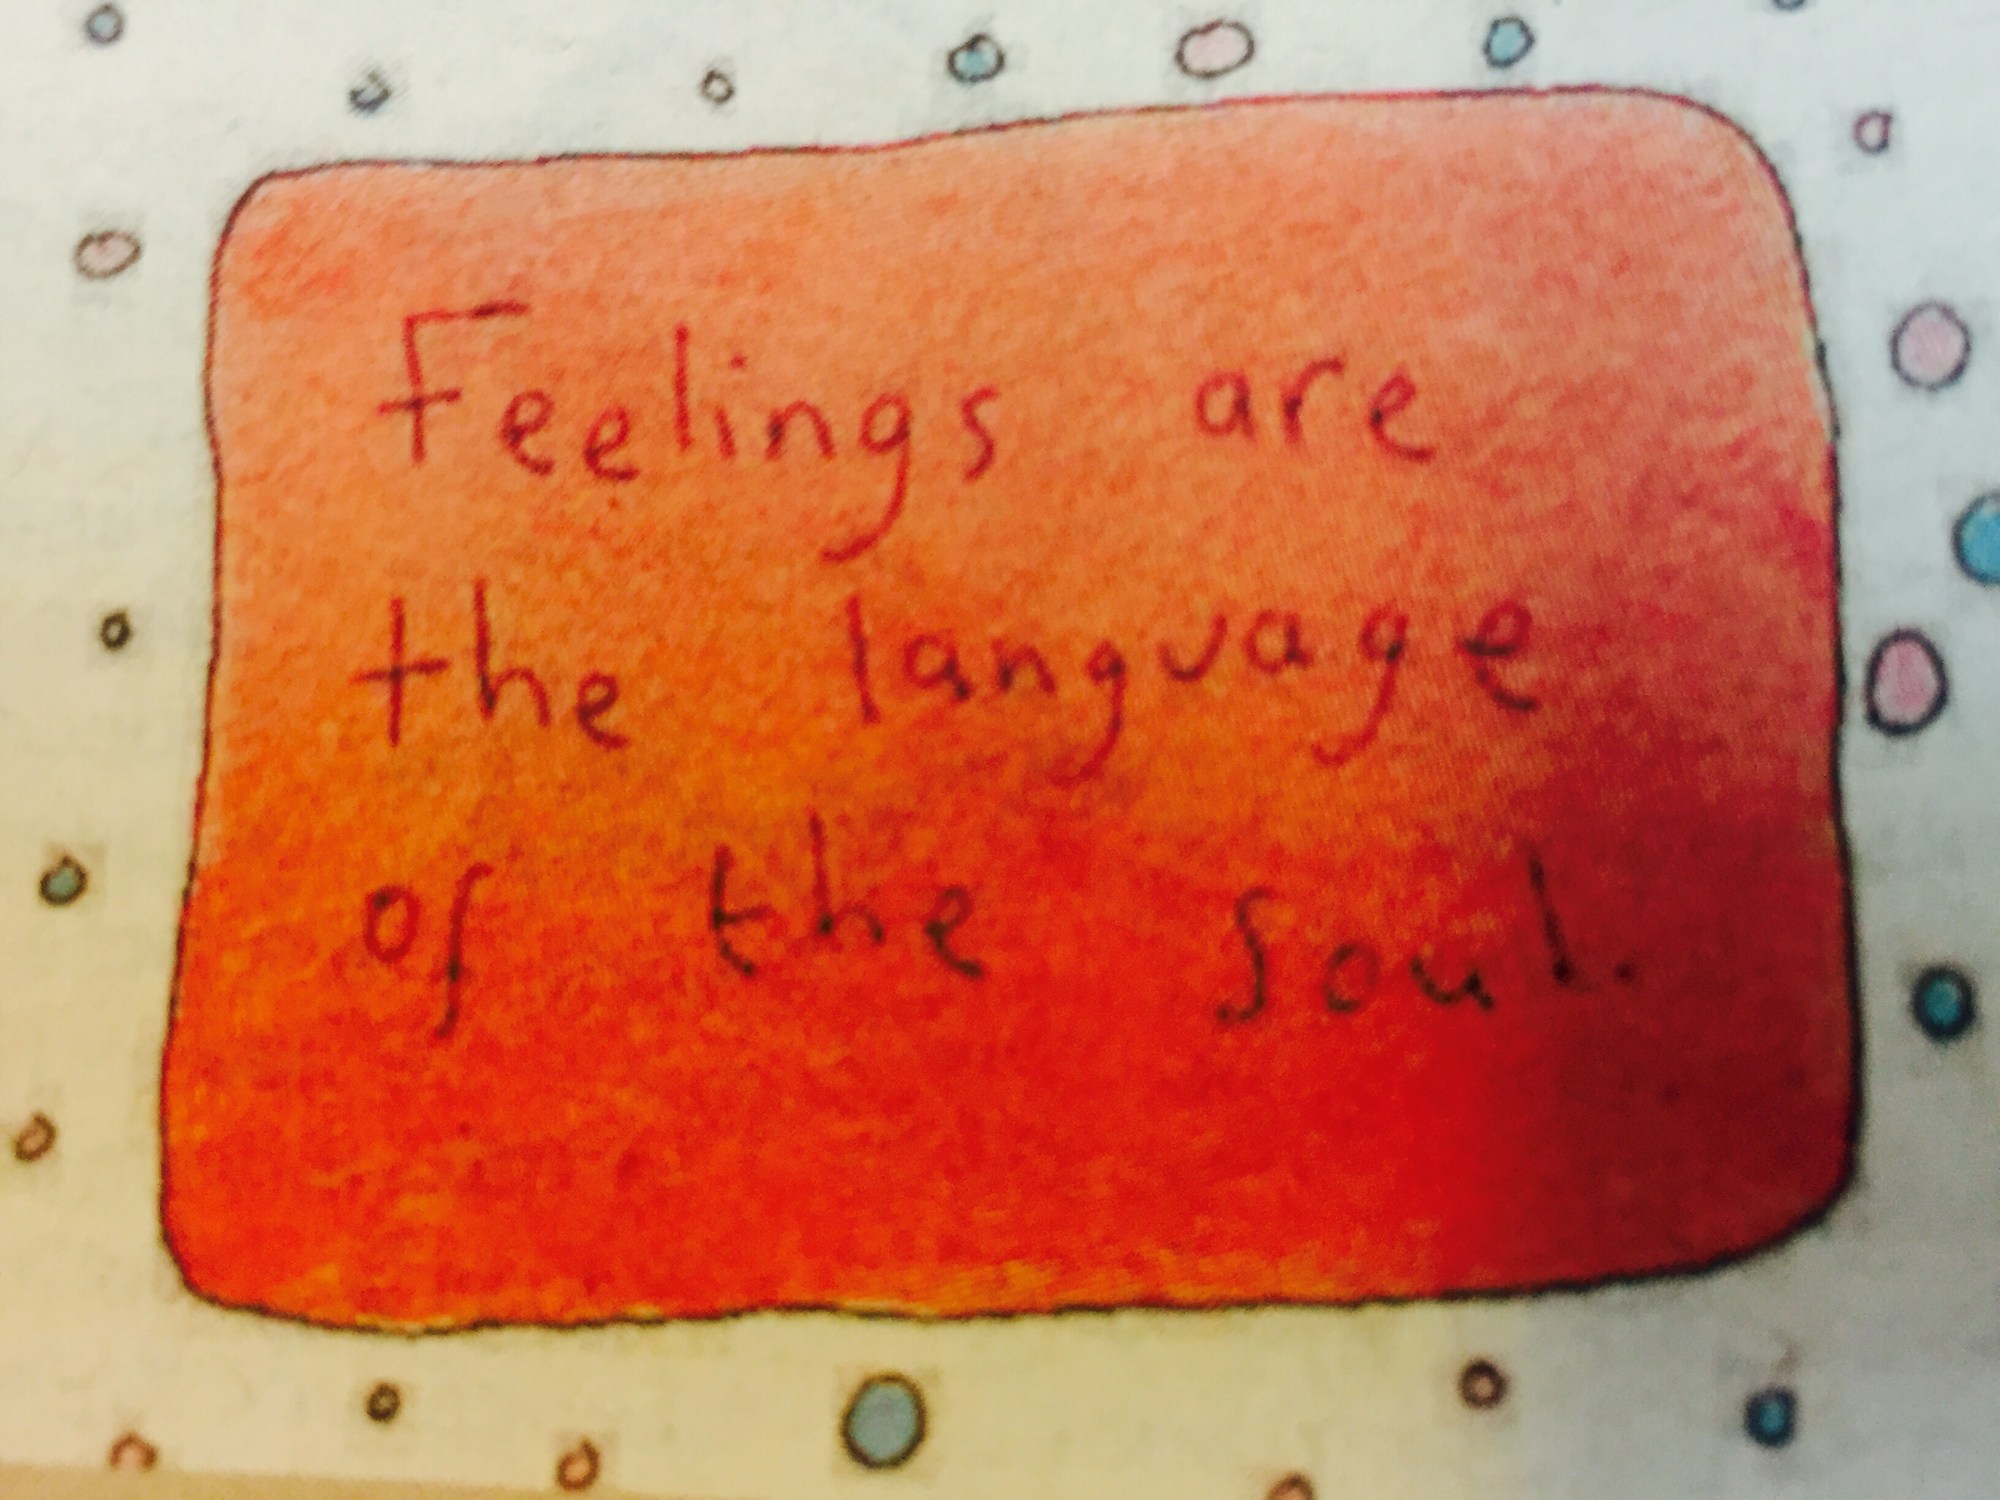 Feelings are
the language
of the soul.